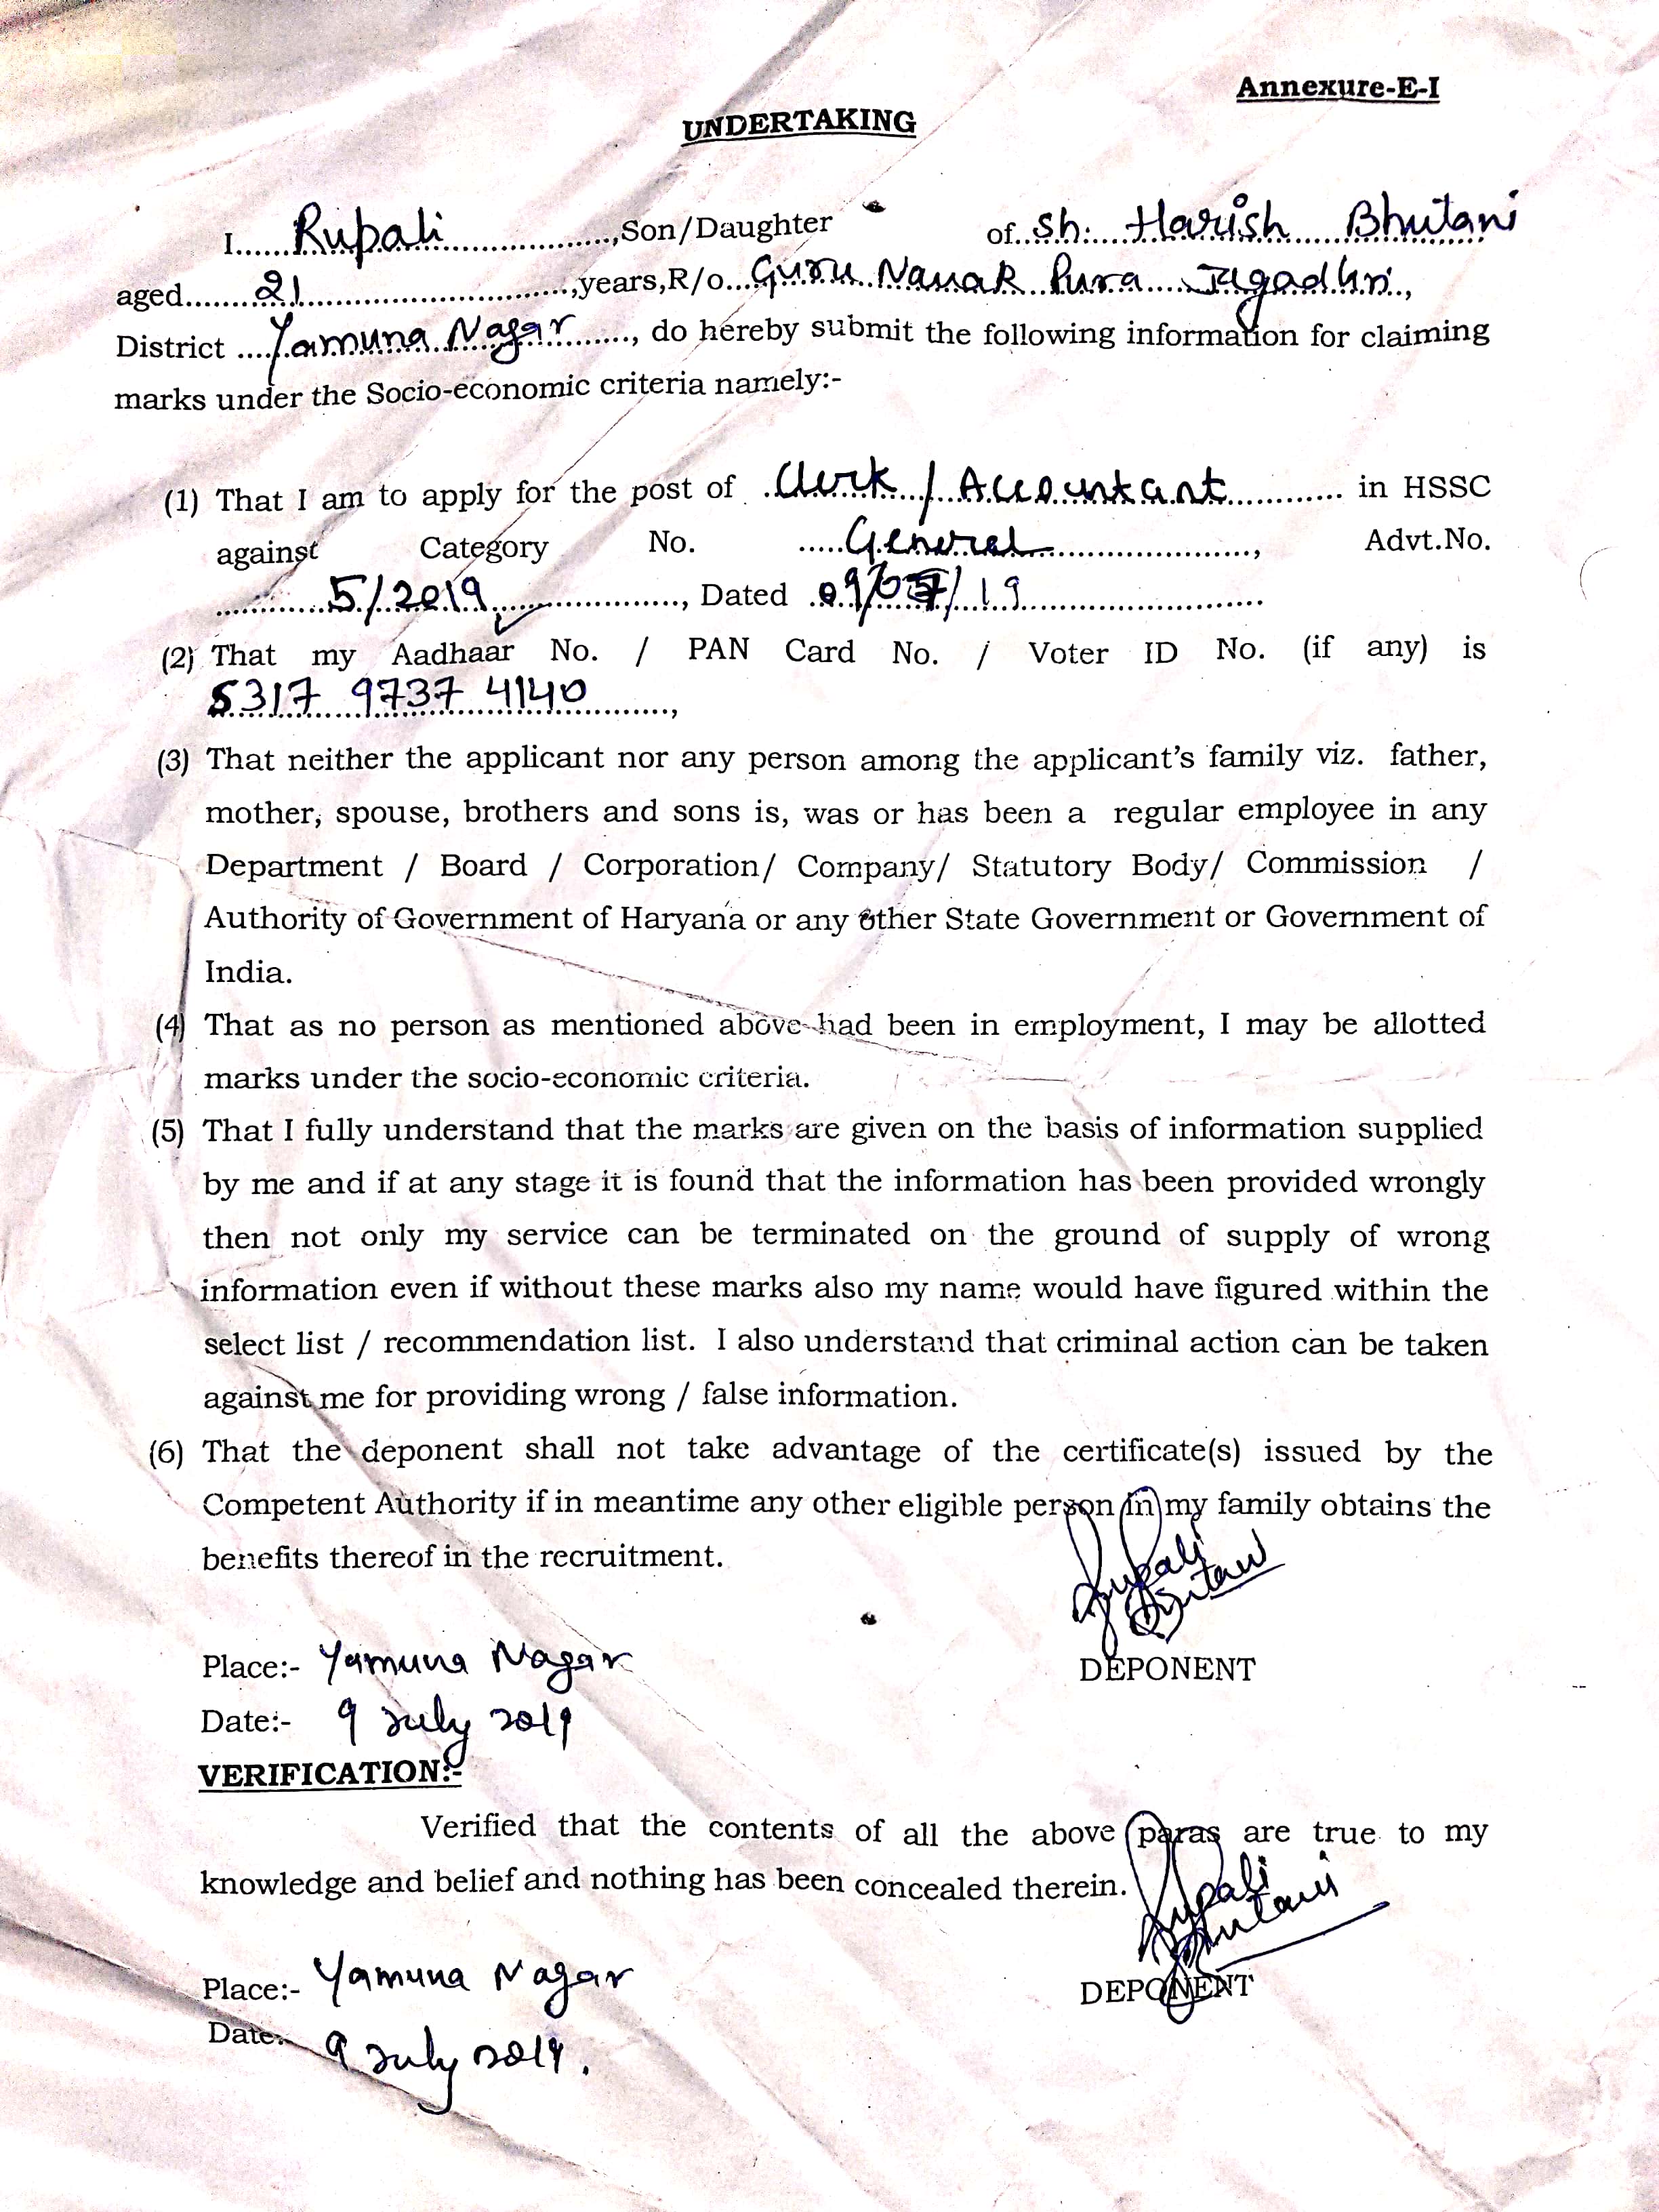 Annexure-E-I
UNDERTAKING
I......Rupali....................,Son/Daughter of..Sh:....Harish....Bhutani
aged.......21............................,years,R/o...Guru Nanak Pura Jagadhri.,
District ....Yamuna Nagar......, do hereby submit the following information for claiming
marks under the Socio-economic criteria namely:-
(1) That I am to apply for the post of ..Clerk / Accountant............ in HSSC
against Category No. .....General......................, Advt.No.
............5/2019..................., Dated .09/07/19.........................
(2) That my Aadhaar No. / PAN Card No. / Voter ID No. (if any) is
5317 9737 4140........,
(3) That neither the applicant nor any person among the applicant's family viz. father,
mother, spouse, brothers and sons is, was or has been a regular employee in any
Department / Board / Corporation/ Company/ Statutory Body/ Commission /
Authority of Government of Haryana or any other State Government or Government of
India.
(4) That as no person as mentioned above had been in employment, I may be allotted
marks under the socio-economic criteria.
(5) That I fully understand that the marks are given on the basis of information supplied
by me and if at any stage it is found that the information has been provided wrongly
then not only my service can be terminated on the ground of supply of wrong
information even if without these marks also my name would have figured within the
select list / recommendation list. I also understand that criminal action can be taken
against me for providing wrong / false information.
(6) That the deponent shall not take advantage of the certificate(s) issued by the
Competent Authority if in meantime any other eligible person in my family obtains the
benefits thereof in the recruitment.
Rupali
Bhutani
Place:- Yamuna Nagar DEPONENT
Date:- 9 July 2019
VERIFICATION:-
Verified that the contents of all the above paras are true to my
knowledge and belief and nothing has been concealed therein.
Rupali
Bhutani
Place:- Yamuna Nagar DEPONENT
Date:- 9 July 2019.